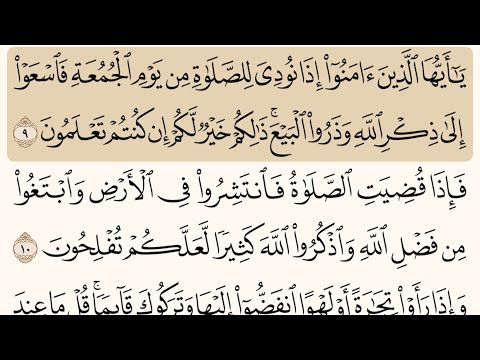 يَٰٓأَيُّهَا ٱلَّذِينَ ءَامَنُوٓا۟ إِذَا نُودِىَ لِلصَّلَوٰةِ مِن يَوْمِ ٱلْجُمُعَةِ فَٱسْعَوْا۟
إِلَىٰ ذِكْرِ ٱللَّهِ وَذَرُوا۟ ٱلْبَيْعَ ۚ ذَٰلِكُمْ خَيْرٌ لَّكُمْ إِن كُنتُمْ تَعْلَمُونَ ٩
فَإِذَا قُضِيَتِ ٱلصَّلَوٰةُ فَٱنتَشِرُوا۟ فِى ٱلْأَرْضِ وَٱبْتَغُوا۟
مِن فَضْلِ ٱللَّهِ وَٱذْكُرُوا۟ ٱللَّهَ كَثِيرًا لَّعَلَّكُمْ تُفْلِحُونَ ١٠
وَإِذَا رَأَوْا۟ تِجَٰرَةً أَوْ لَهْوًا ٱنفَضُّوٓا۟ إِلَيْهَا وَتَرَكُوكَ قَآئِمًا ۚ قُلْ مَا عِندَ